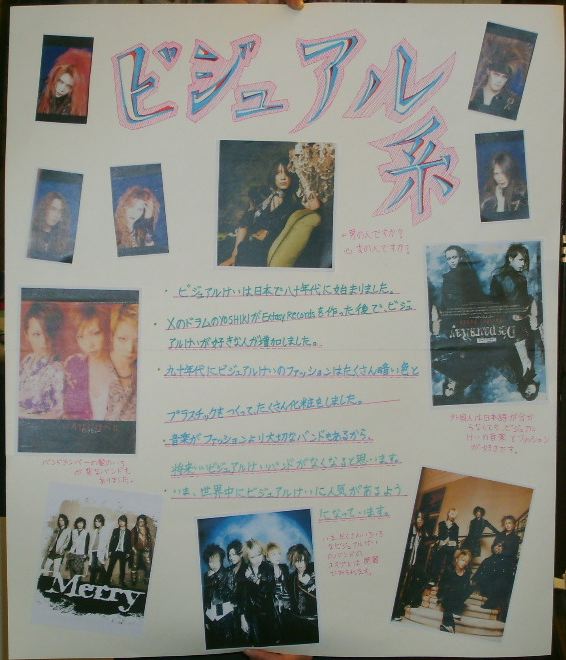 ビジュアル
系
♂男の人ですか?
♀女の人ですか?
・ビジュアルけいは日本で八十年代に始まりました。
・XのドラムのYOSHIKIがEctasy Recordsを作った後で、ビジュ
アルけいが好きな人が増加しました。
・九十年代にビジュアルけいのファッションはたくさん暗い色と
プラスチックをつくって、たくさん化粧をしました。
・音楽がファッションより大切なバンドもあるから、
将来、ビジュアルけいバンドがなくなると思います。
・いま、世界中にビジュアルけいに人気があるよう
になっています。
D'espairsRay
外国人は日本語が分か
らなくても、ビジュアル
けいの音楽とファッション
が好きです。
バンドメンバーの髪のいろ
が
バンドも
ありました。
Merry
いま、たくさんいろいろ
なビジュアルけい
のバンドの